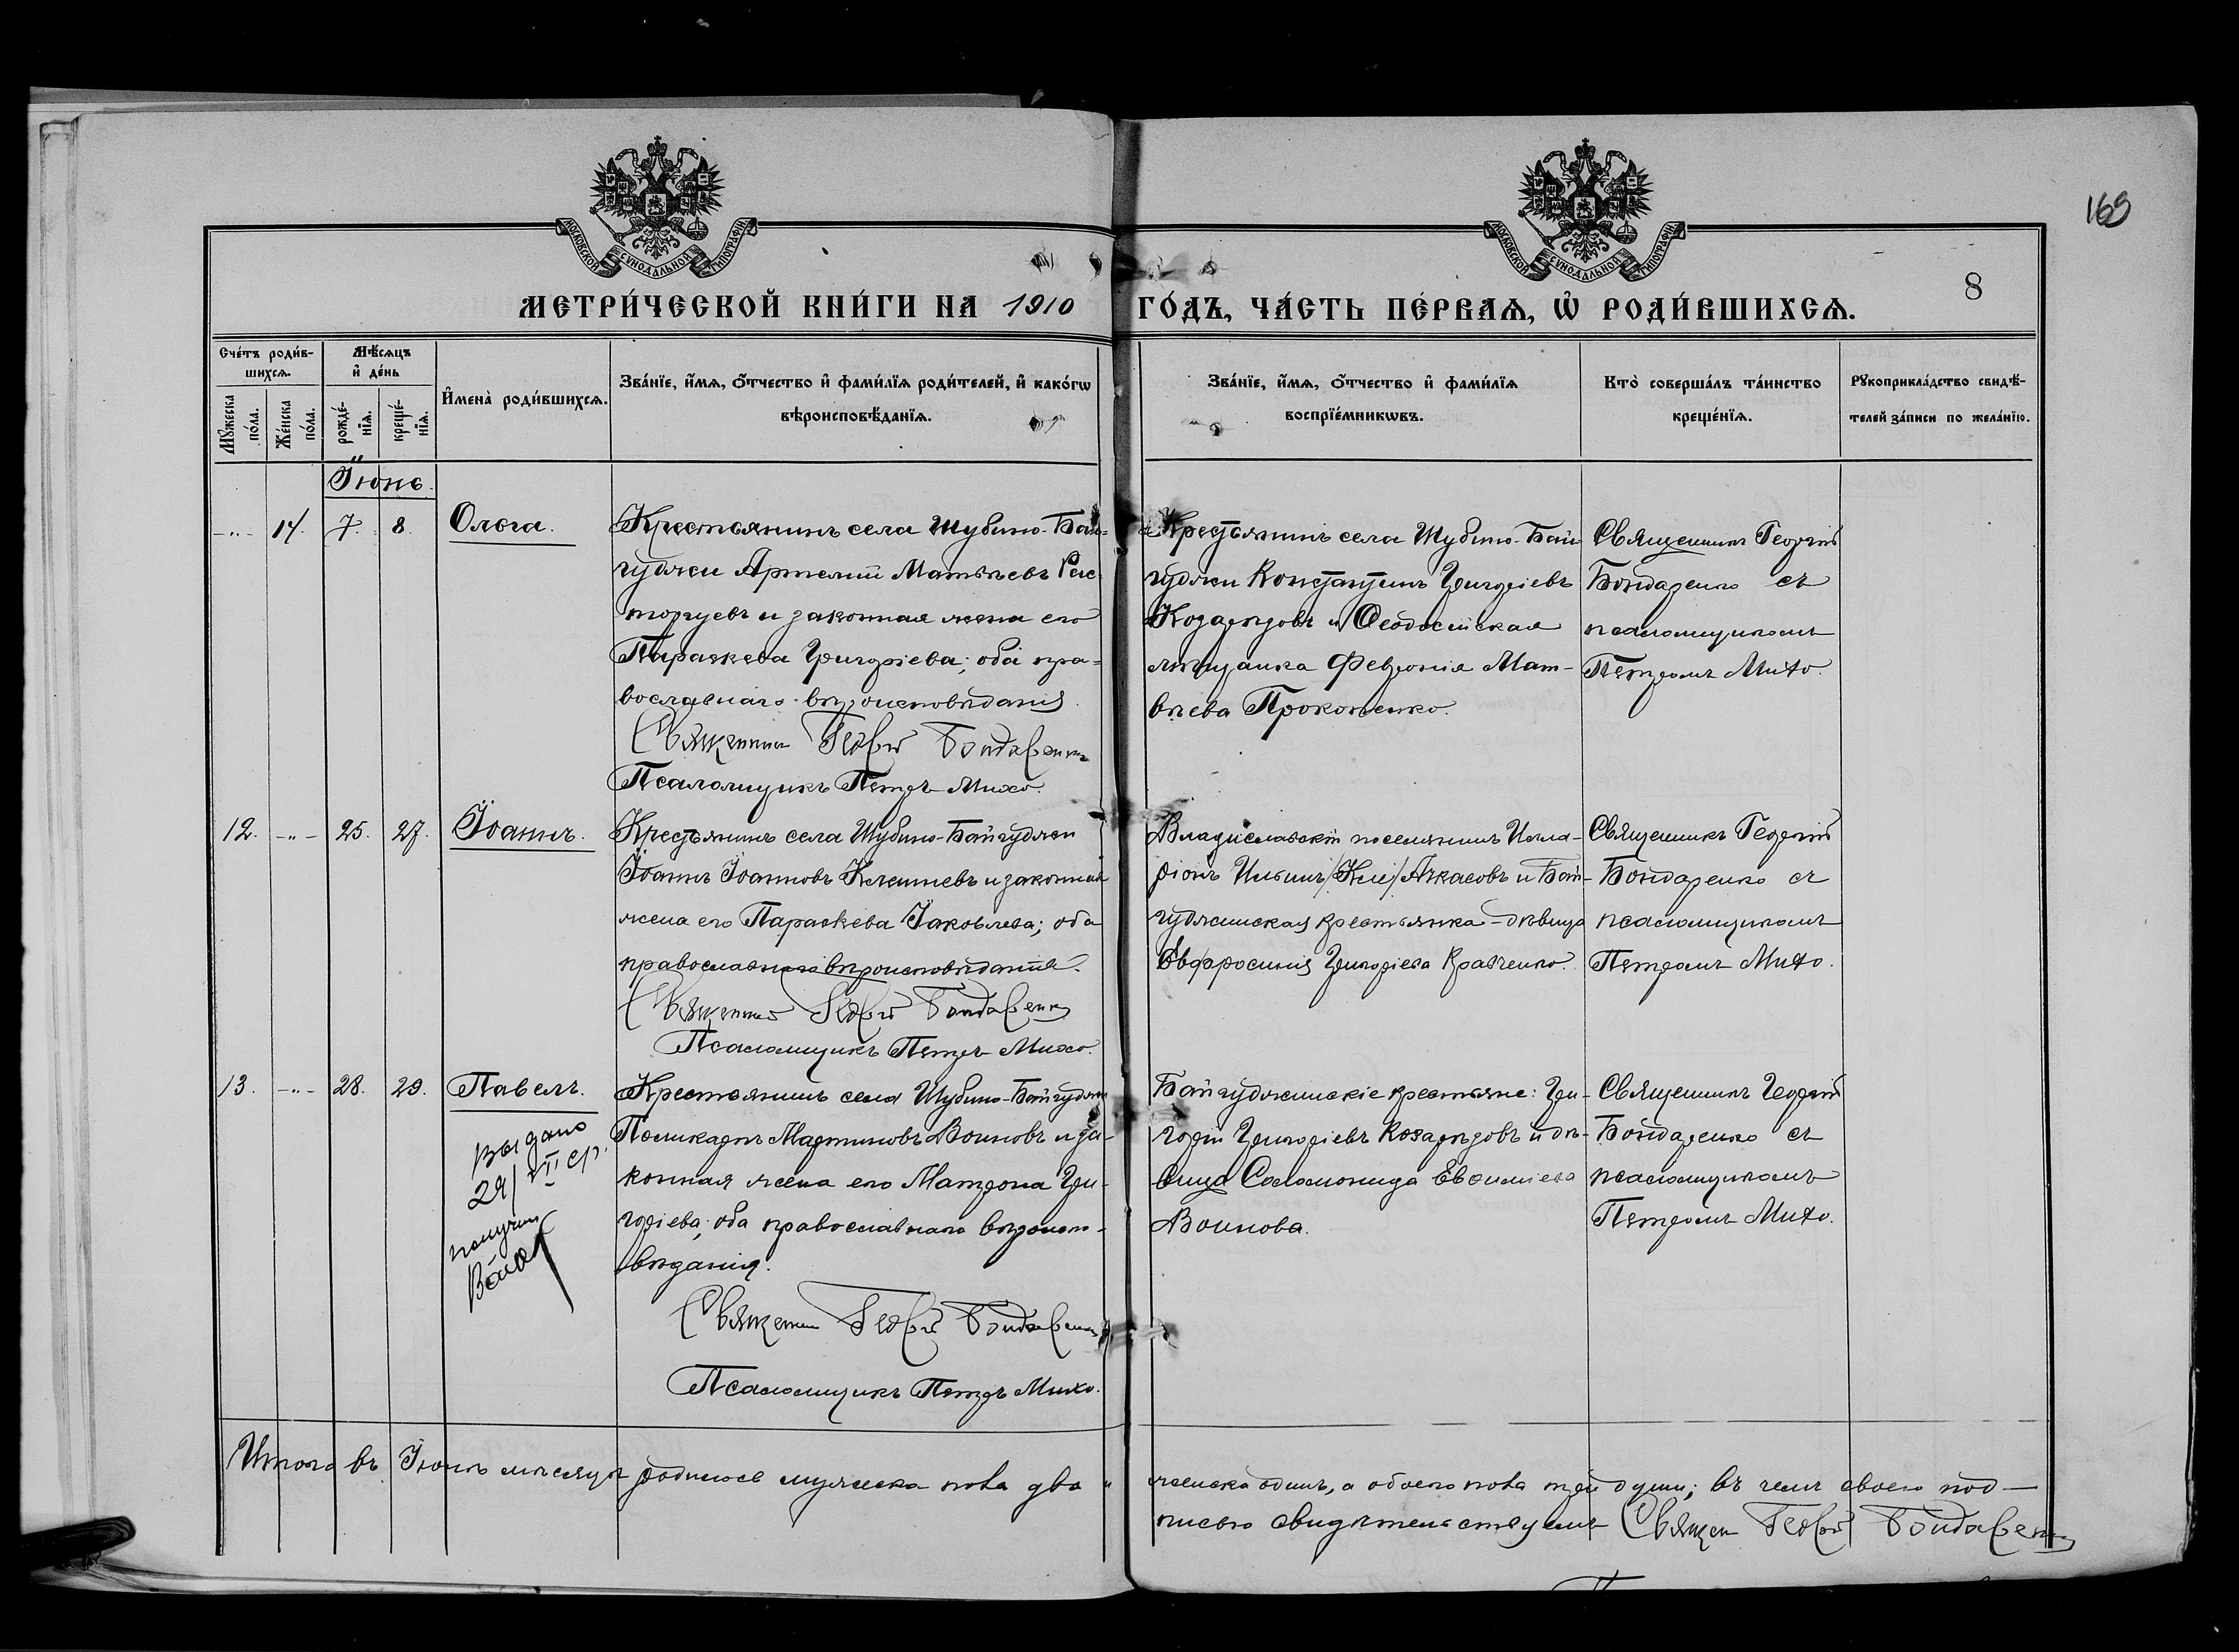 169
МОСКОВСКОЙ СѴНОДАЛЬНОЙ ТИПОГРАФІИ
МОСКОВСКОЙ СѴНОДАЛЬНОЙ ТИПОГРАФІИ
8
МЕТРИ́ЧЕСКОЙ КНИ́ГИ НА 1910 ГО́ДЪ, ЧА́СТЬ ПЕ́РВАѦ, Ѡ҆ РОДИ́ВШИХСѦ.
Сче́тъ роди́в-
шихсѧ.
Мꙋ́жеска по́ла.
Же́нска по́ла.
Мѣ́сѧцъ
и҆ де́нь
рожде́-
нїѧ.
креще́-
нїѧ.
И҆мена̀ роди́вшихсѧ.
Зва́нїе, и҆́мѧ, о҆́тчество и҆ фами́лїѧ роди́телей, и҆ како́гѡ
вѣроисповѣ́данїѧ.
Зва́нїе, и҆́мѧ, о҆́тчество и҆ фами́лїѧ
воспрїе́мникѡвъ.
Кто̀ соверша́лъ та́инство
креще́нїѧ.
Рꙋкоприкла́дство свидѣ́-
телей за́писи по жела́нїю.
Іюнь.
-"- 14. 7. 8. Ольга.
Крестьянинъ села Шубино-Бай-
гуджи Артемій Матвѣевъ Рас-
торгуевъ и законная жена его
Параскева Григоріева; оба пра-
вославнаго вѣроисповѣданія.
Священникъ Георгій Бондаренко
Псаломщикъ Петръ Михо.
Крестьянинъ села Шубино-Бай-
гуджи Константинъ Григоріевъ
Козарѣзовъ и Ѳеодосійская
мѣщанка Февронія Мат-
вѣева Прокопенко.
Священникъ Георгій
Бондаренко съ
псаломщикомъ
Петромъ Михо.
12. -"- 25. 27. Іоаннъ.
Крестьянинъ села Шубино-Байгуджи
Іоаннъ Іоанновъ и законная
жена его Параскева Іаковлева; оба
православнаго вѣроисповѣданія.
Священникъ Георгій Бондаренко
Псаломщикъ Петръ Михо.
Владиславскій поселянинъ Илла-
ріонъ Ильинъ Ачкасовъ и Бай-
гуджинская крестьянка-дѣвица
Евфросинія Григоріева Кравченко.
Священникъ Георгій
Бондаренко съ
псаломщикомъ
Петромъ Михо.
13. -"- 28. 29. Павелъ.
Выдано
29/VII
получил
Крестьянинъ села Шубино-Байгуджи
Поликарпъ Мартиновъ Воиновъ и за-
конная жена его Матрона Гри-
горіева; оба православнаго вѣроиспо-
вѣданія.
Священникъ Георгій Бондаренко
Псаломщикъ Петръ Михо.
Байгуджинскіе крестьяне: Гри-
горій Григоріевъ Козарѣзовъ и дѣ-
вица Соломонида Евѳиміева
Воинова.
Священникъ Георгій
Бондаренко съ
псаломщикомъ
Петромъ Михо.
Итого въ Іюнѣ мѣсяцѣ родилось мужеска пола два " женска одинъ, а обоего пола три души; въ чемъ своею под-
писью свидѣтельствуемъ Священ Георгій Бондаренко